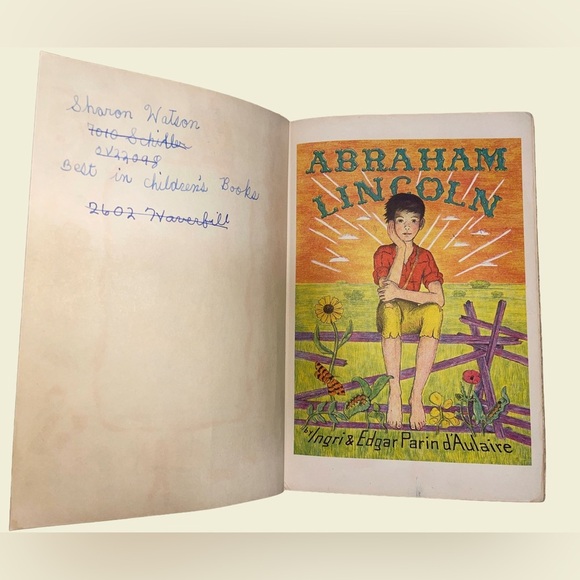 Sharon Watson
7010 Schiller
OV22098
Best in children's Books
2602 Haverhill
ABRAHAM
LINCOLN
by Ingri & Edgar Parin d'Aulaire